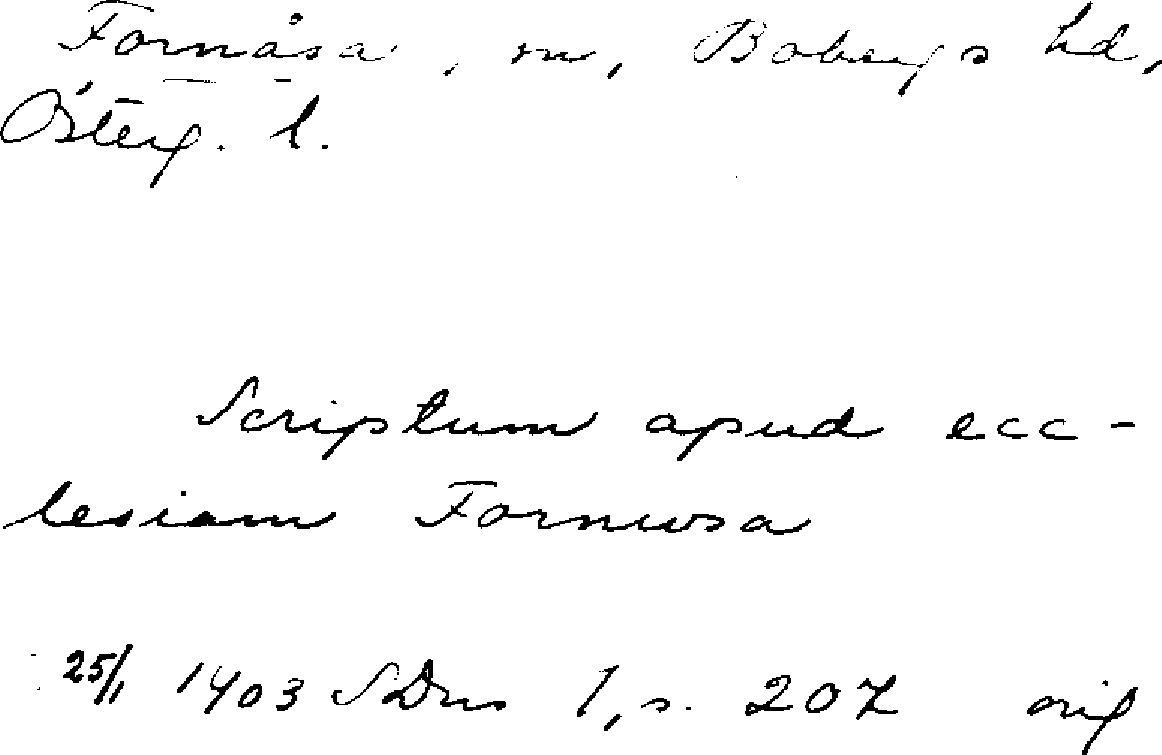 Fornåsa, sn, Bobergs hd,
Österg. l.
Scriptum apud ecc-
lesiam Fornwsa
25/1 1403 SDns 1, s. 207 orig